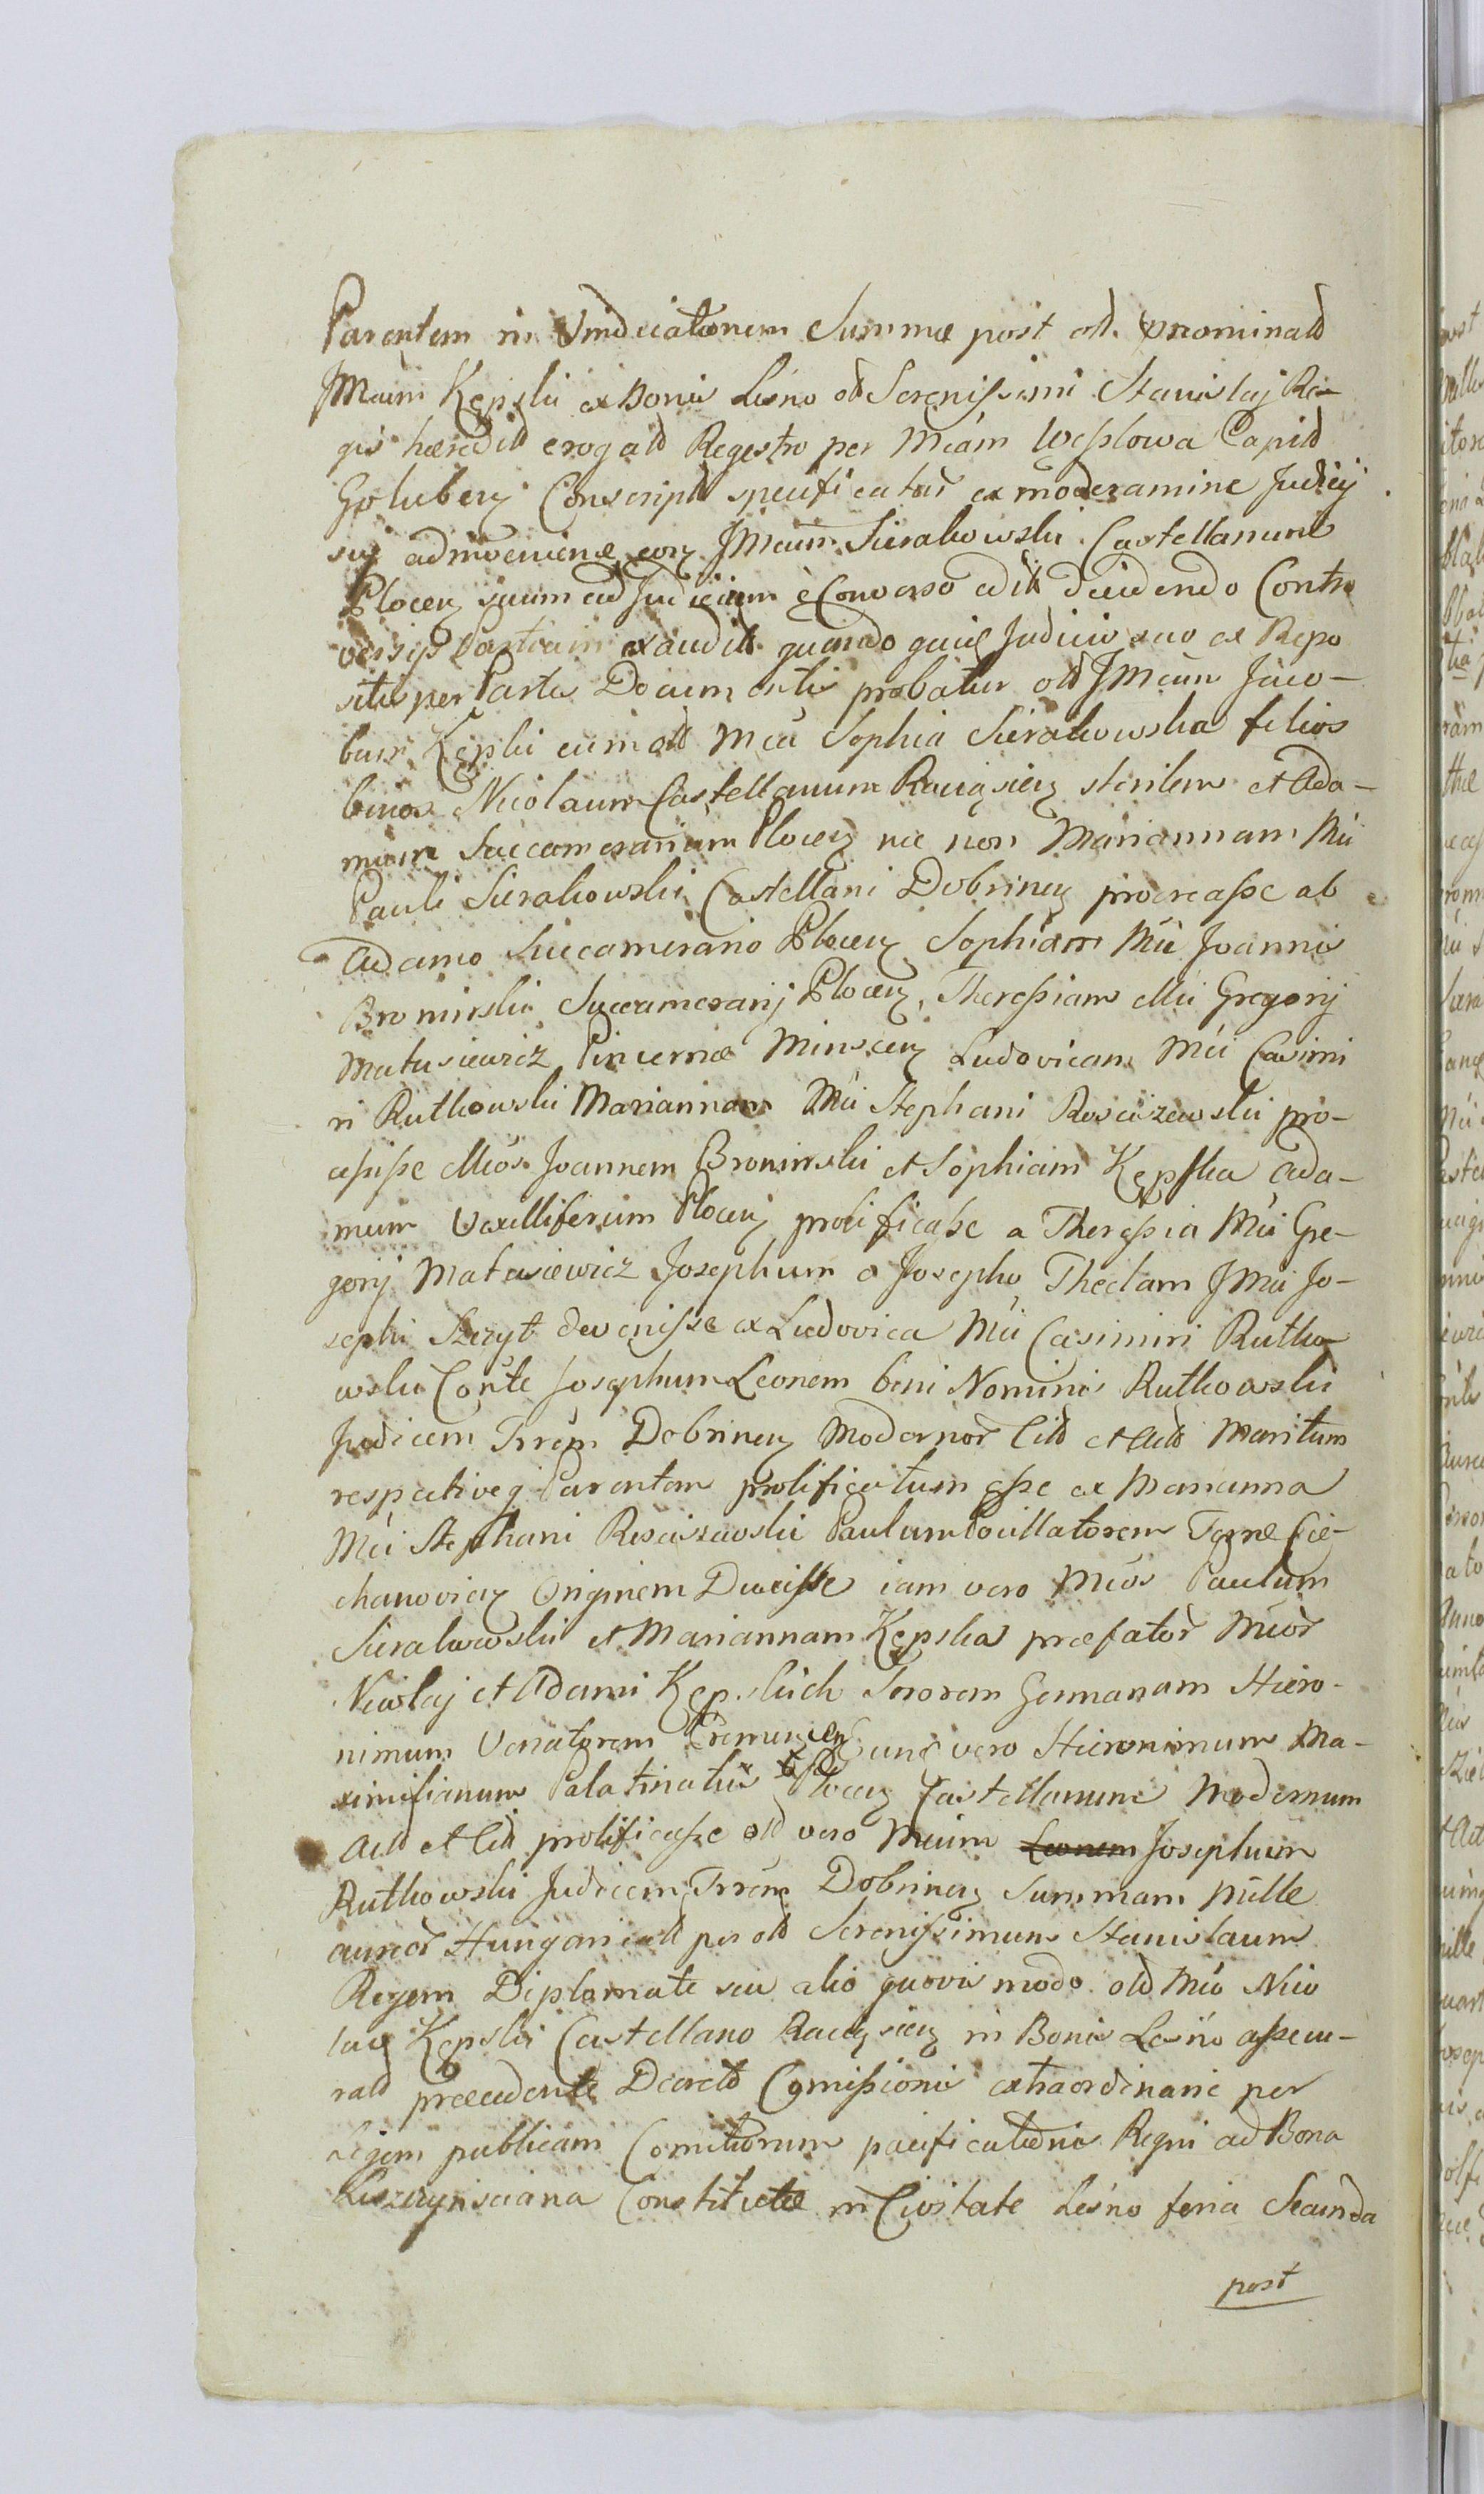 Parentem in Vindicationem Summæ post old. prænominald
JMcum Kępski ex Bonis Leśno old Serenissimi Stanislaj Re-
gis hæredild erogald Regestro per Mcám Wesslowa Capild
Golubeń Conscripld specificatar ex moderamine Judicij
sui adinvenienæ JMcum Sierakowski Castellanum
Plocen suum ad Judicium è Converso adild diudendo Contro
versijs Partium exaudild quando quid Judicio suo ex Repo
sitis per Partes Documentis probatur old JMcum Jaco-
bum Kępski cum old Mcá Sophia Sierakowska filios
binos Nicolaum Castellanum Raciąsien sterilem et Ada-
mum Succamerarium Plocen nec non Mariannam Mci
Pauli Sierakowski Castellani Dobrinen procreasse ab
Adamo Succamerario Plocen Sophiam Mci Joannis
Bromirski Succamerarij Plocen, Theressiam Mci Gregorij
Matusiewicz Pincernæ Minscen Ludovicam Mci Casimi
ri Rutkowski Mariannam Mci Stephani Rosciszewski pro-
cessisse Mcos Joannem Bromirski et Sophiam Kępska Ada-
mum Vexilliferum Plocen prolificasse a Theressia Mci Gre-
gorij Matusiewicz Josephum a Josepho Theclam JMci Jo-
sephi Szczyt devenisse ex Ludovica Mci Casimiri Rutko
wski Conte Josephum Leonem bini Nominis Rutkowski
Judicem Trrém Dobrinen Modernor Cild et Actd Maritum
respectiveq Parentem prolificatum esse ex Marianna
Mci Stephani Rosciszewski Paulum Pocillatorem Terræ Cie-
chanovien Originem Duxisse iam vero Mcos Paulum
Sierakowski et Mariannam Kępska præfator Mcor
Nicolaj et Adami Kępskich Sororem Germanam Hiero-
nimum Venatorem Cremencen hunc vero Hieronimum Ma-
ximilianum Palatinatus Plocen Castellanum Modernum
Actd et Cild prolificasse old vero Mcum Leonem Josephum
Rutkowski Judicem Trrém Dobrinen Summam Mille
aureor Hungaricald per old Serenissimum Stanislaum
Regem Diplomate seu alio quovis modo old Mco Nico
lao Kępski Castellano Raciąsien in Bonis Leśno assecu-
rald præcedente Decreto Comissionis extraordinarie per
Legem publicam Comitiorum pacificationis Regni ad Bona
Leszczynsciana Constitutæ in Civitate Leśno feria Secunda
post